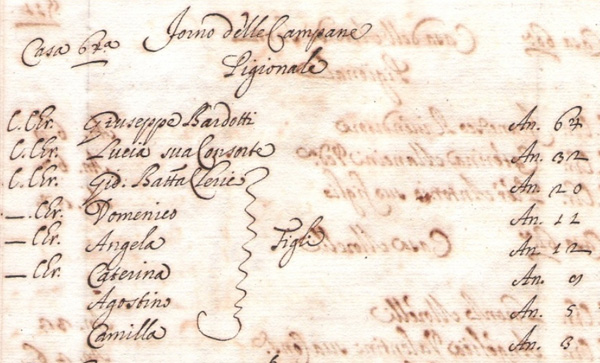 Jorno delle Campane
Casa 67a
Pigionale
C. Chr. Giuseppe Bardotti An. 67
C. Chr. Lucia sua Consorte An. 32
C. Chr. Gio. Batta Cleric An. 20
—. Chr. Domenico An. 11
—. Chr. Angela Figli An. 12
—. Chr. Caterina An. 9
Agostino An. 5
Camilla An. 3